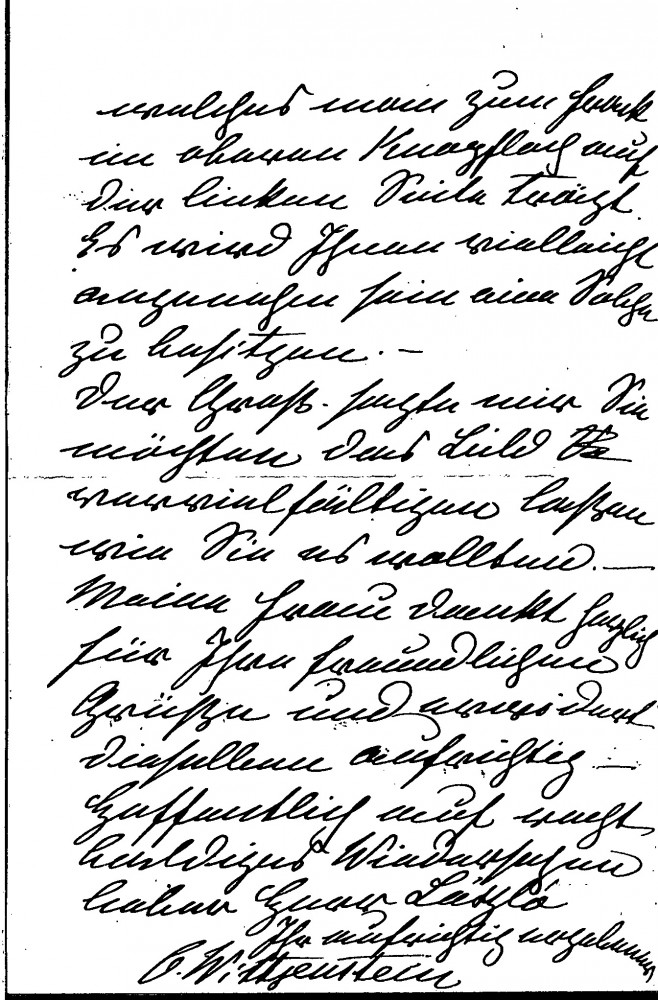 welches man zum Frack
im oberen Knopfloch auf
der linken Seite trägt.
Es wird Ihnen vielleicht
angenehm sein eine Solche
zu besitzen. –
Der Großh. sagte mir Sie
möchten das Bild
vervielfältigen laßen
wie Sie es wollten. –
Meine Frau dankt herzlich
für Ihre freundlichen
Grüße und erwidert
dieselben aufrichtig –
Hoffentlich auf recht
baldiges Wiedersehen
lieber Herr László
Ihr aufrichtig ergebener
O. Wittgenstein